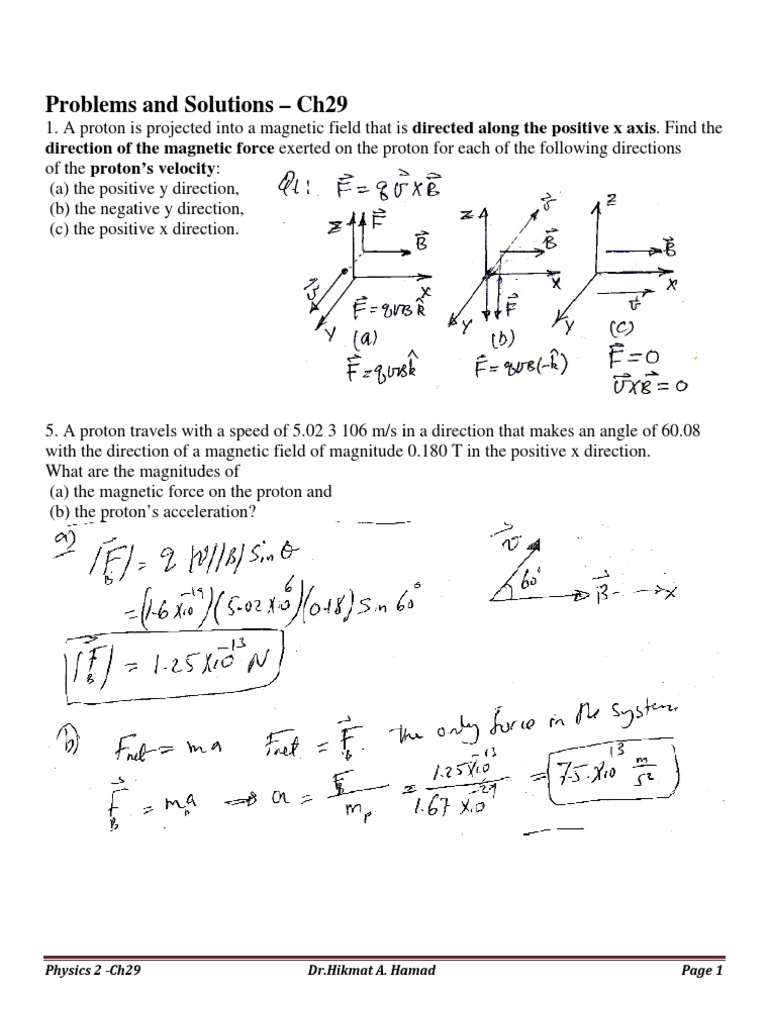 Problems and Solutions – Ch29
1. A proton is projected into a magnetic field that is directed along the positive x axis. Find the
direction of the magnetic force exerted on the proton for each of the following directions
of the proton's velocity:
(a) the positive y direction,
(b) the negative y direction,
(c) the positive x direction.
Q1: F⃗ = q v⃗ × B⃗
z F⃗ B⃗ x v⃗ y
F⃗ = qvB k̂
(a)
F⃗ = qvB k̂
z v⃗ B⃗ x F⃗ y
(b)
F⃗ = qvB(-k̂)
z B⃗ x v⃗ y
(c)
F⃗ = 0
v⃗ × B⃗ = 0
5. A proton travels with a speed of 5.02 3 106 m/s in a direction that makes an angle of 60.08
with the direction of a magnetic field of magnitude 0.180 T in the positive x direction.
What are the magnitudes of
(a) the magnetic force on the proton and
(b) the proton's acceleration?
a) |F⃗_B| = q |v||B| Sin θ
= (1.6 × 10^-19)(5.02 × 10^6)(0.18) Sin 60°
|F⃗_B| = 1.25 × 10^-13 N
v⃗ 60° B⃗ x
b) F_net = ma F_net = F⃗_B The only force in the system.
F⃗_B = ma ⇒ a = F_B / m_p = 1.25 × 10^-13 / 1.67 × 10^-27 = 7.5 × 10^13 m/s²
Physics 2 -Ch29 Dr.Hikmat A. Hamad Page 1